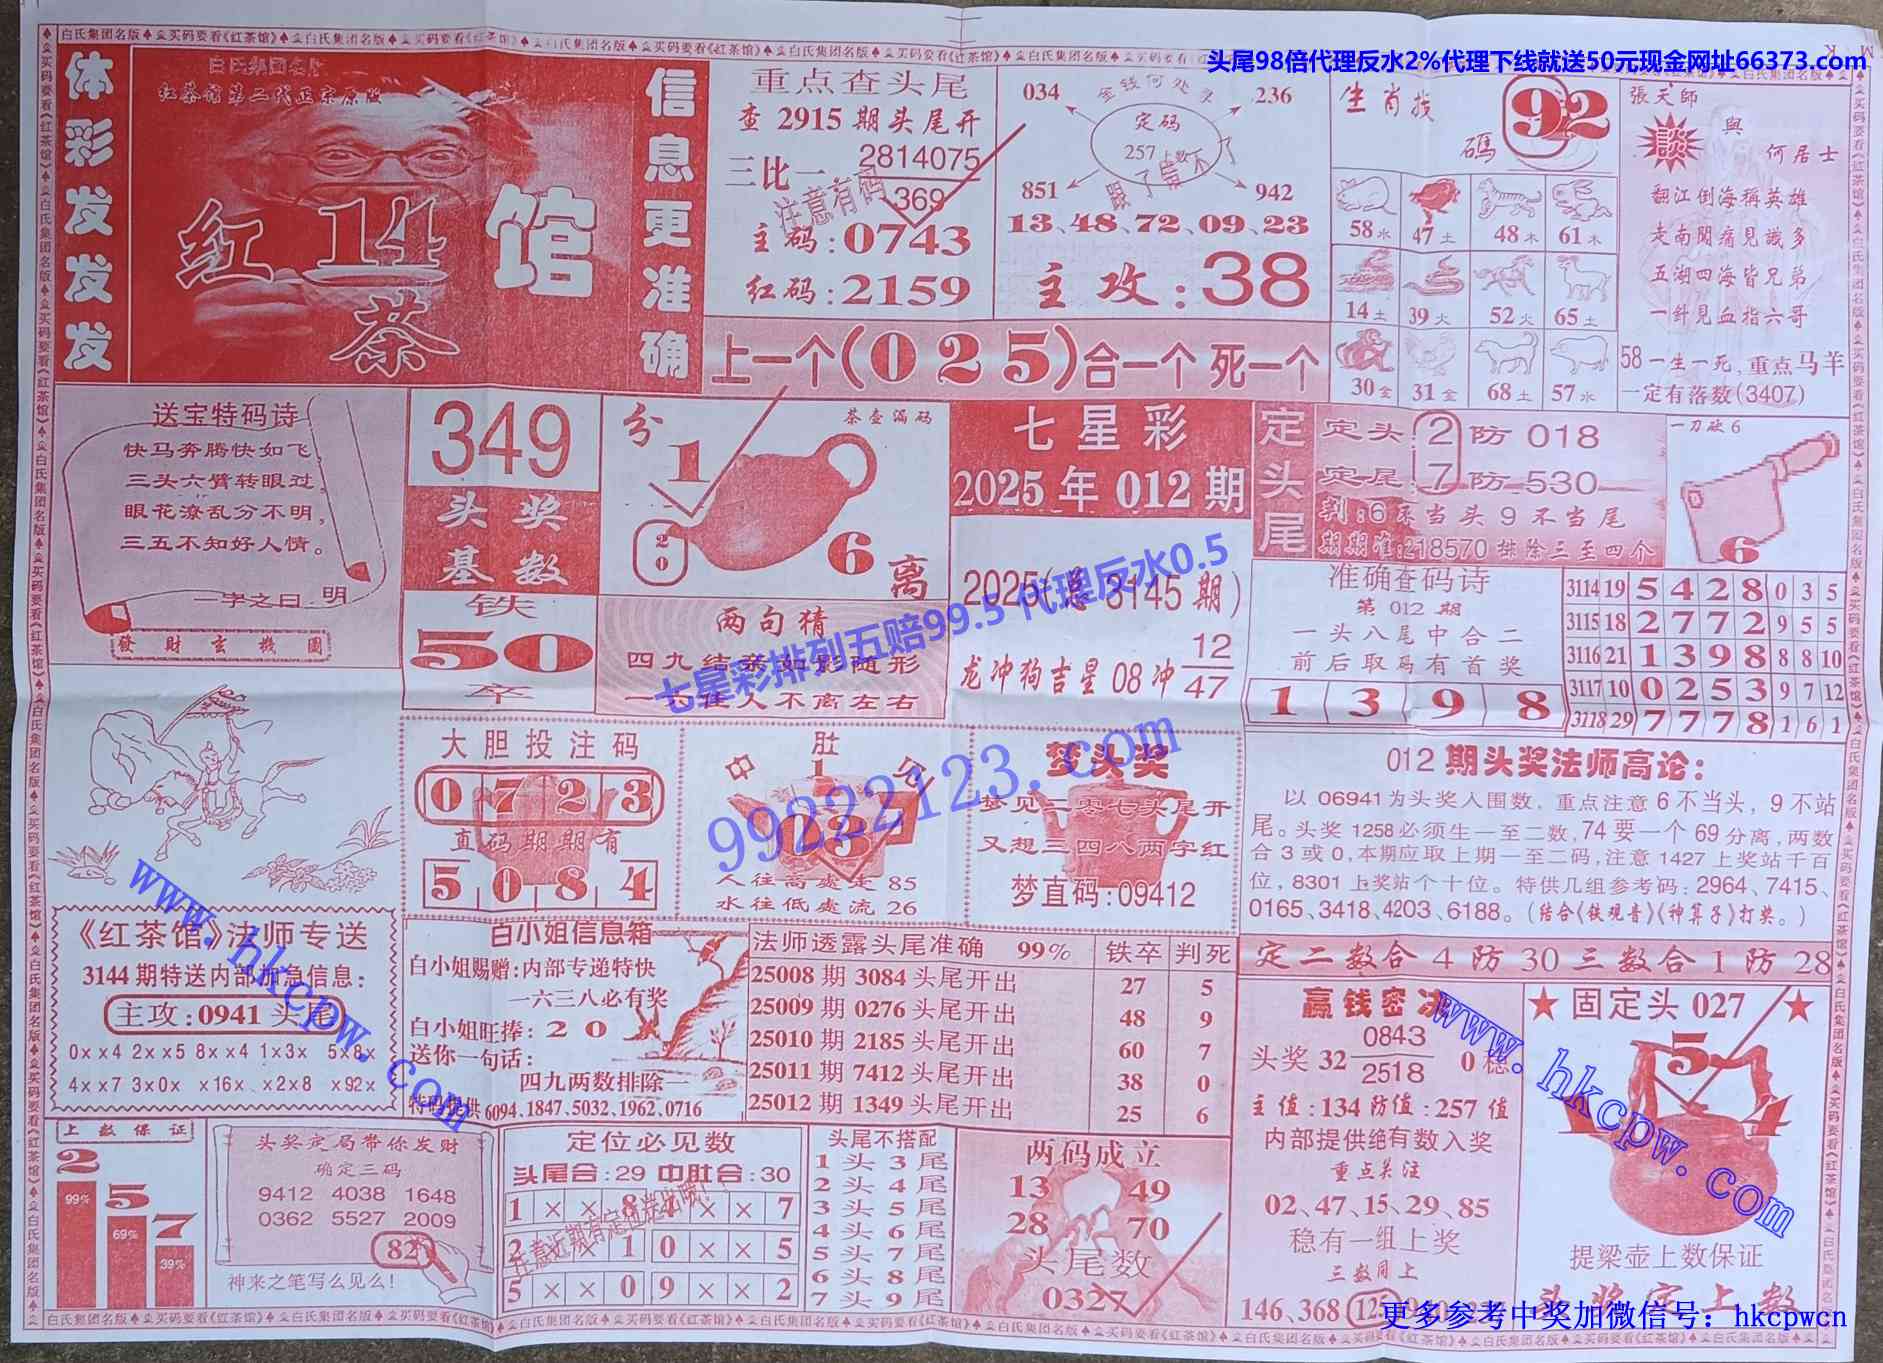 头尾98倍代理反水2%代理下线就送50元现金网址66373.com
体彩发发发
白氏集团名版
红茶馆第二代正宗原版
红14馆
茶
信息更准确
重点查头尾
查2915期头尾开
三比一 2814075
369
注意有码
主码:0743
红码:2159
034 金钱何处去 236
定码
257上数
851 942
13、48、72、09、23
主攻:38
上一个(025)合一个 死一个
生肖找
碼
92
58水 47土 48木 61木
14土 39火 52火 65土
30金 31金 68土 57水
張天師
談 與
何居士
翻江倒海稱英雄
走南闖痛見識多
五湖四海皆兄弟
一針見血指六哥
58一生一死,重点马羊
一定有落数(3407)
送宝特码诗
快马奔腾快如飞,
三头六臂转眼过,
眼花潦乱分不明,
三五不知好人情。
一字之曰 明
發財玄機圖
349
头奖
基数
铁
50
卒
分 茶壶漏码
1
2
0
6 离
两句猜
四九结亲如影随形
七星彩
2025年012期
2025(总3145期)
龙冲狗吉星08冲 12
47
七星彩排列五赔99.5代理反水0.5
定头尾
定头 2 防018
定尾 7 防530
判:6不当头9不当尾
期期准:218570排除三至四个
一刀砍6
6
准确查码诗
第012期
一头八尾中合二
前后取局有首奖
1 3 9 8
3114 19 5 4 2 8 0 3 5
3115 18 2 7 7 2 9 5 5
3116 21 1 3 9 8 8 8 10
3117 10 0 2 5 3 9 7 12
3118 29 7 7 7 8 1 6 1
大胆投注码
0723
直码期期有
5084
中 肚 见
1
03
人往高處走85
水往低處流26
梦头奖
梦见二零七头尾开
又想三四八两字红
梦直码:09412
99222123.com
012期头奖法师高论:
以06941为头奖入围数,重点注意6不当头,9不站
尾。头奖1258必须生一至二数,74要一个69分离,两数
合3或0,本期应取上期一至二码,注意1427上奖站千百
位,8301上奖站个十位。特供几组参考码:2964、7415、
0165、3418、4203、6188。(结合《铁观音》《神算子》打奖。)
定二数合4防30三数合1防28
《红茶馆》法师专送
3144期特送内部加急信息:
主攻:0941头尾
0××4 2××5 8××4 1×3× 5×8×
4××7 3×0× ×16× ×2×8 ×92×
www.hkcpw.com
白小姐信息箱
白小姐赐赠:内部专递特快
一六三八必有奖
白小姐旺捧:20
送你一句话:
四九两数排除一
特码提供6094、1847、5032、1962、0716
法师透露头尾准确 99% 铁卒 判死
25008期3084头尾开出 27 5
25009期0276头尾开出 48 9
25010期2185头尾开出 60 7
25011期7412头尾开出 38 0
25012期1349头尾开出 25 6
赢钱密决
头奖32 0843
2518 0稳
主值:134防值:257值
内部提供绝有数入奖
重点关注
02、47、15、29、85
稳有一组上奖
三数同上
146、368 125
固定头027
5
1 4
提梁壶上数保证
头奖定上数
www.hkcpw.com
上数保证
2 5 7
99% 69% 39%
头奖定局带你发财
确定三码
9412 4038 1648
0362 5527 2009
82
神来之笔写么见么!
定位必见数
头尾合:29 中肚合:30
1××8 4××7
2××1 0××5
5××0 9××2
头尾不搭配
1头3尾
2头4尾
3头5尾
4头6尾
5头7尾
6头8尾
7头9尾
两码成立
13 49
28 70
头尾数
0327
更多参考中奖加微信号:hkcpwcn
白氏集团名版♠买码要看《红茶馆》